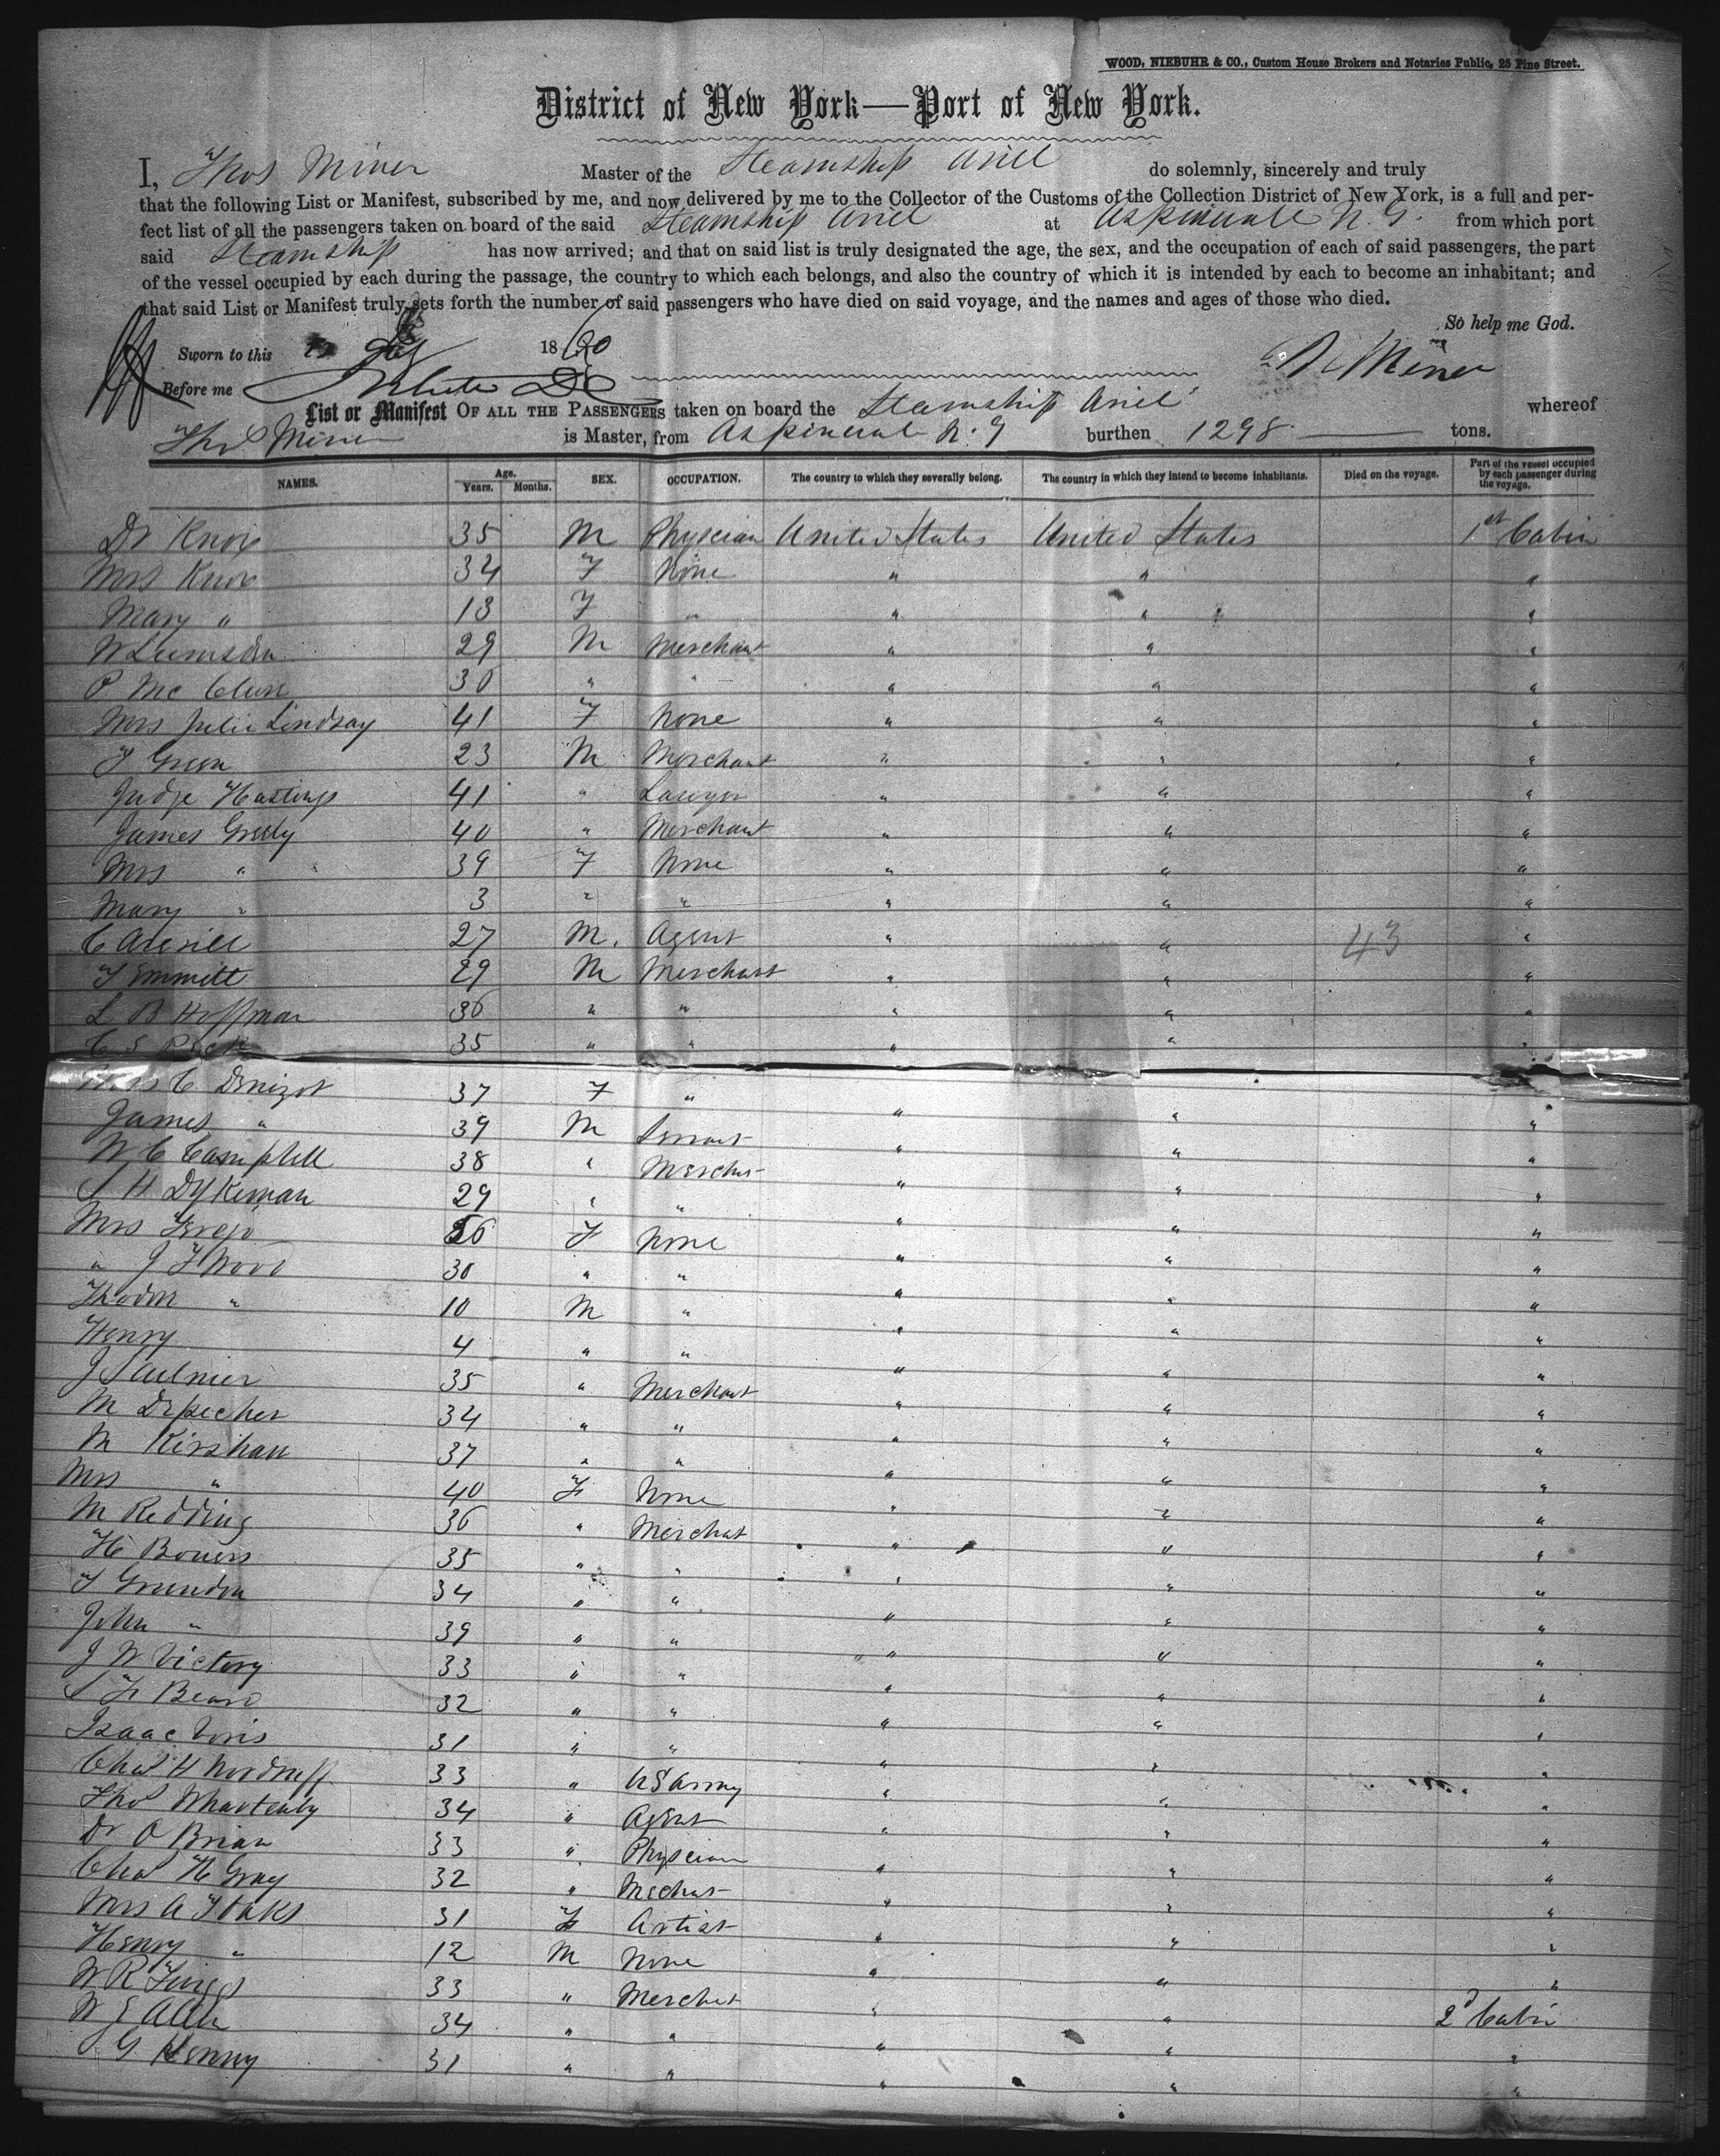 WOOD, NIEBUHR & CO., Custom House Brokers and Notaries Public, 25 Pine Street.
District of New York—Port of New York.
I, Thos Miner Master of the Steamship Ariel do solemnly, sincerely and truly
that the following List or Manifest, subscribed by me, and now delivered by me to the Collector of the Customs of the Collection District of New York, is a full and per-
fect list of all the passengers taken on board of the said Steamship Ariel at Aspinwall N. G. from which port
said Steamship has now arrived; and that on said list is truly designated the age, the sex, and the occupation of each of said passengers, the part
of the vessel occupied by each during the passage, the country to which each belongs, and also the country of which it is intended by each to become an inhabitant; and
that said List or Manifest truly sets forth the number of said passengers who have died on said voyage, and the names and ages of those who died.
So help me God.
Sworn to this 1860 Miner
Before me
List or Manifest OF ALL THE PASSENGERS taken on board the Steamship Ariel whereof
Thos Miner is Master, from Aspinwall N. G burthen 1298 tons.
NAMES. Age. Years. Months. SEX. OCCUPATION. The country to which they severally belong. The country in which they intend to become inhabitants. Died on the voyage. Part of the vessel occupied by each passenger during the voyage.
Dr Knox 35 M Physcian United States United States 1st Cabin
Mrs Knox 34 F None " " "
Mary " 13 F " " " "
W Lumsden 29 M Merchant " " "
P Mc Clure 30 " " " " "
Mrs Julie Lindsay 41 F None " " "
T Green 23 M Merchant " " "
Judge Hastings 41 " Lawyer " " "
James Greely 40 " Merchant " " "
Mrs " 39 F None " " "
Mary " 3 " " " " "
C Averill 27 M. Agent " " 43 "
T Emmitt 29 M Merchant " " "
L B Hoffman 36 " " " " "
C S 35 " " " " "
Mrs C Denizot 37 F " " " "
James " 39 M " " "
W C Campbell 38 " Merchat " " "
S H Dykeman 29 " " " " "
Mrs 56 F None " " "
" J F Wood 30 " " " " "
" 10 M " " " "
Henry 4 " " " " "
J Saulnier 35 " Merchant " " "
M Depecher 34 " " " " "
M Kirshau 37 " " " " "
Mrs " 40 F None " " "
M Redding 36 " Merchat " " "
H Bowers 35 " " " " "
T 34 " " " " "
John " 39 " " " " "
J W Victory 33 " " " " "
S F Beard 32 " " " " "
Isaac 31 " " " " "
Chas H Woodruff 33 " US Army " " "
Thos Whartenby 34 " Agent " " "
Dr O Brian 33 " Physcian " " "
Chas H Gray 32 " Mechat " " "
Mrs A 31 F Artist " " "
Henry " 12 M None " " "
W R 33 " Merchat " " 2d Cabin
W E Allen 34 " " " " "
J G Henny 31 " " " " "